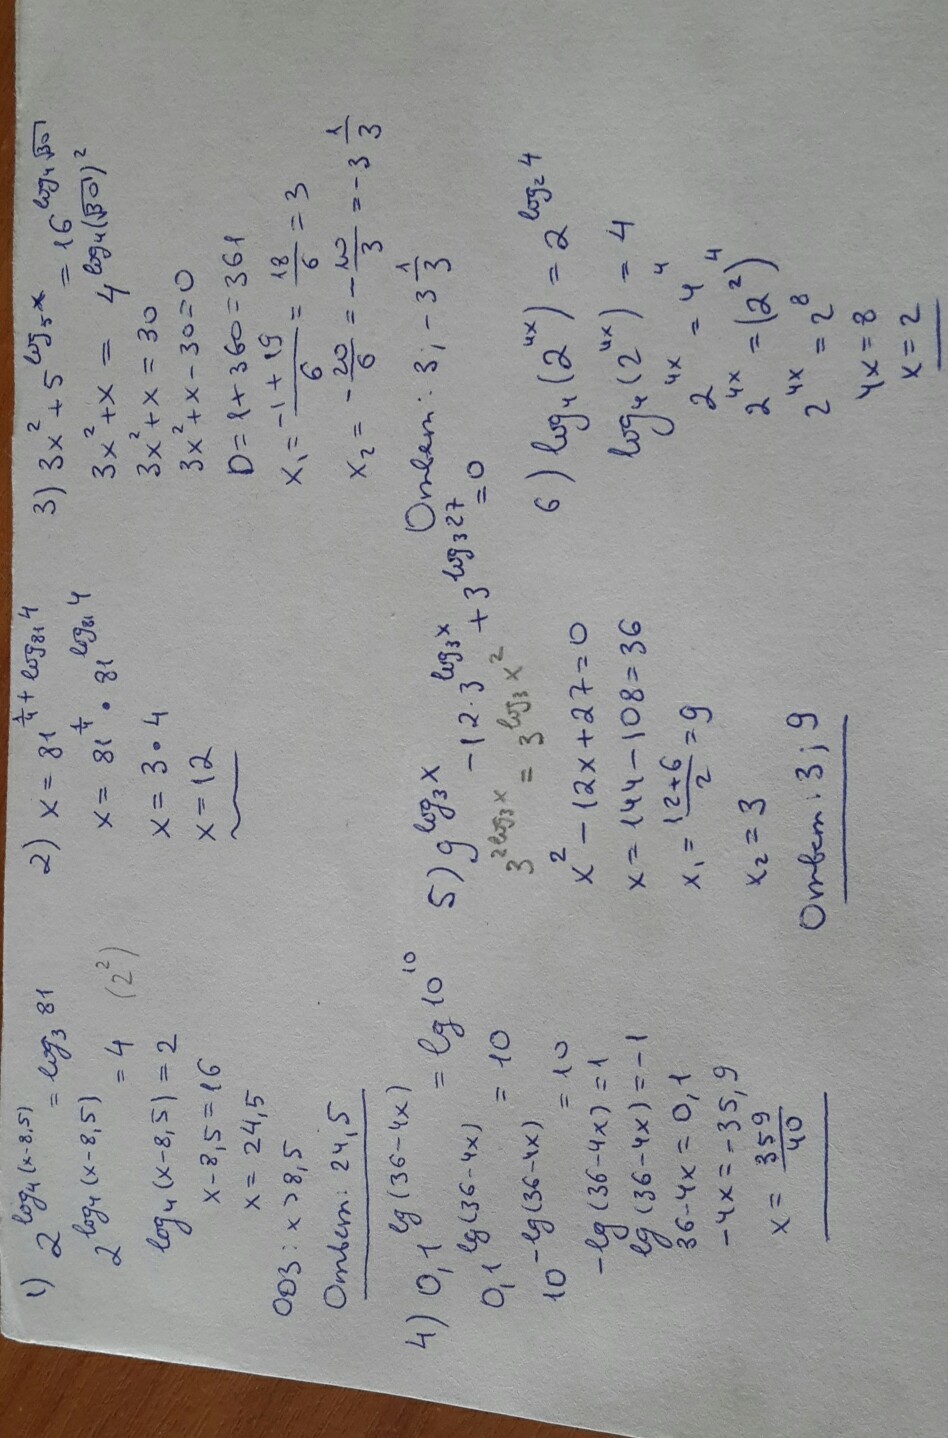 1) 2^log₄(x-8,5) = log₃81
2^log₄(x-8,5) = 4 (2²)
log₄(x-8,5) = 2
x-8,5=16
x=24,5
ОДЗ: x>8,5
Ответ: 24,5
2) x = 81^(1/4 + log₈₁4)
x = 81^(1/4) · 81^log₈₁4
x = 3·4
x = 12
3) 3x² + 5^log₅x = 16^log₄√30
3x²+x = 4^log₄(√30)²
3x²+x = 30
3x²+x-30=0
D=1+360=361
x₁ = (-1+19)/6 = 18/6 = 3
x₂ = -20/6 = -10/3 = -3 1/3
Ответ: 3; -3 1/3
4) 0,1^lg(36-4x) = lg10¹⁰
0,1^lg(36-4x) = 10
10^-lg(36-4x) = 10
-lg(36-4x)=1
lg(36-4x)=-1
36-4x=0,1
-4x=-35,9
x = 359/40
5) 9^log₃x - 12·3^log₃x + 3^log₃27 = 0
3^2log₃x = 3^log₃x²
x² - 12x+27=0
x = 144-108=36
x₁ = (12+6)/2 = 9
x₂ = 3
Ответ: 3; 9
6) log₄(2^4x) = 2^log₂4
log₄(2^4x) = 4
2^4x = 4⁴
2^4x = (2²)⁴
2^4x = 2⁸
4x=8
x=2